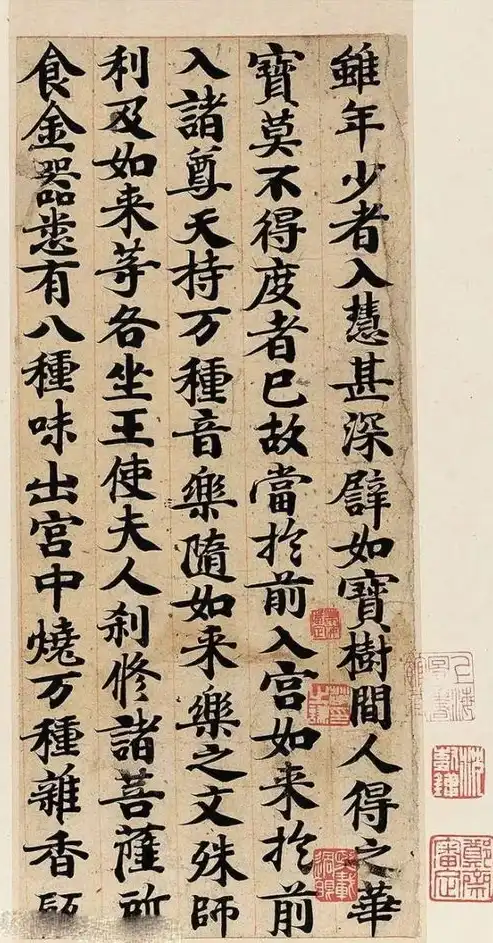 雖年少者入慧甚深譬如寶樹間人得之華
寶莫不得度者已故當於前入宮如来於前
入諸尊天持万種音樂隨如来樂之文殊師
利及如来等各坐王使夫人刹修諸菩薩所
食金器悉有八種味出宮中燒万種雜香